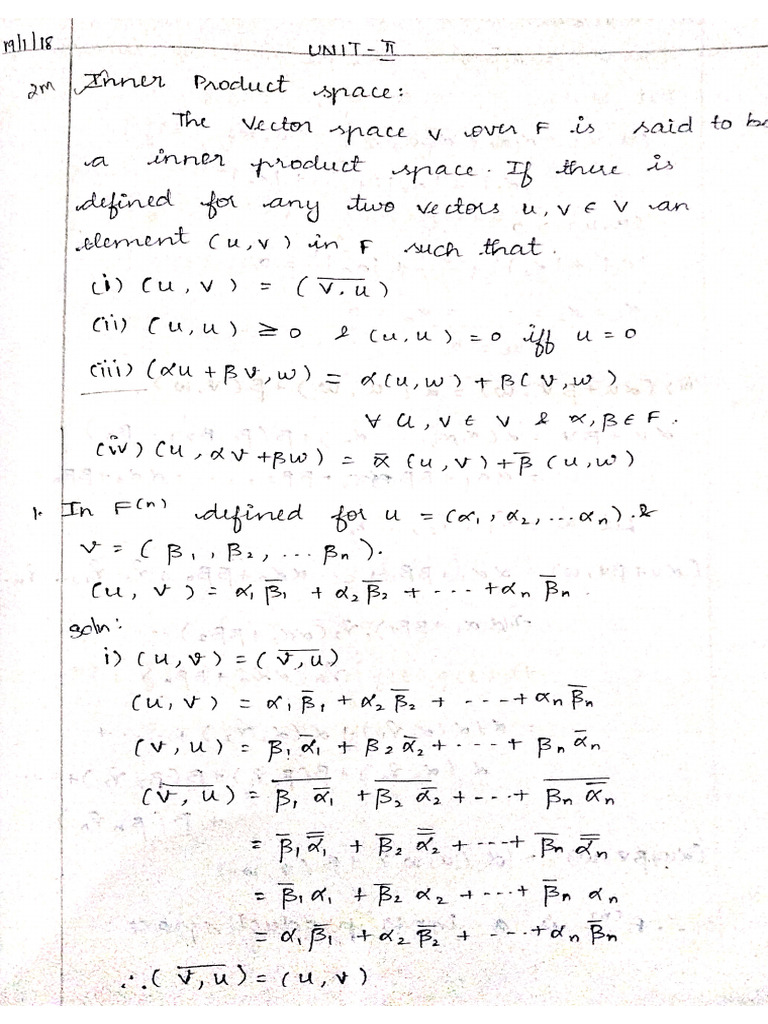 19/1/18
UNIT-II
2m Inner Product space:
The vector space V over F is said to be
a inner product space. If there is
defined for any two vectors u, v ∈ V an
element (u, v) in F such that.
(i) (u, v) = (‾v.u‾)
(ii) (u, u) ≥ 0 & (u, u) = 0 iff u = 0
(iii) (αu + βv, w) = α(u, w) + β(v, w)
∀ u, v ∈ V & α, β ∈ F.
(iv) (u, αv + βw) = ᾱ (u, v) + β̄ (u, w)
1. In F⁽ⁿ⁾ defined for u = (α₁, α₂, ... αₙ). &
v = (β₁, β₂, ... βₙ).
(u, v) = α₁β̄₁ + α₂β̄₂ + ---- + αₙβ̄ₙ.
soln:
i) (u, v) = (‾v, u‾)
(u, v) = α₁β̄₁ + α₂β̄₂ + ---- + αₙβ̄ₙ
(v, u) = β₁ᾱ₁ + β₂ᾱ₂ + ---- + βₙᾱₙ
(‾v, u‾) = ‾β₁ᾱ₁‾ + ‾β₂ᾱ₂‾ + ---- + ‾βₙᾱₙ‾
= β̄₁α̿₁ + β̄₂α̿₂ + ---- + β̄ₙα̿ₙ
= β̄₁α₁ + β̄₂α₂ + ---- + β̄ₙαₙ
= α₁β̄₁ + α₂β̄₂ + ---- + αₙβ̄ₙ
∴ (‾v, u‾) = (u, v)